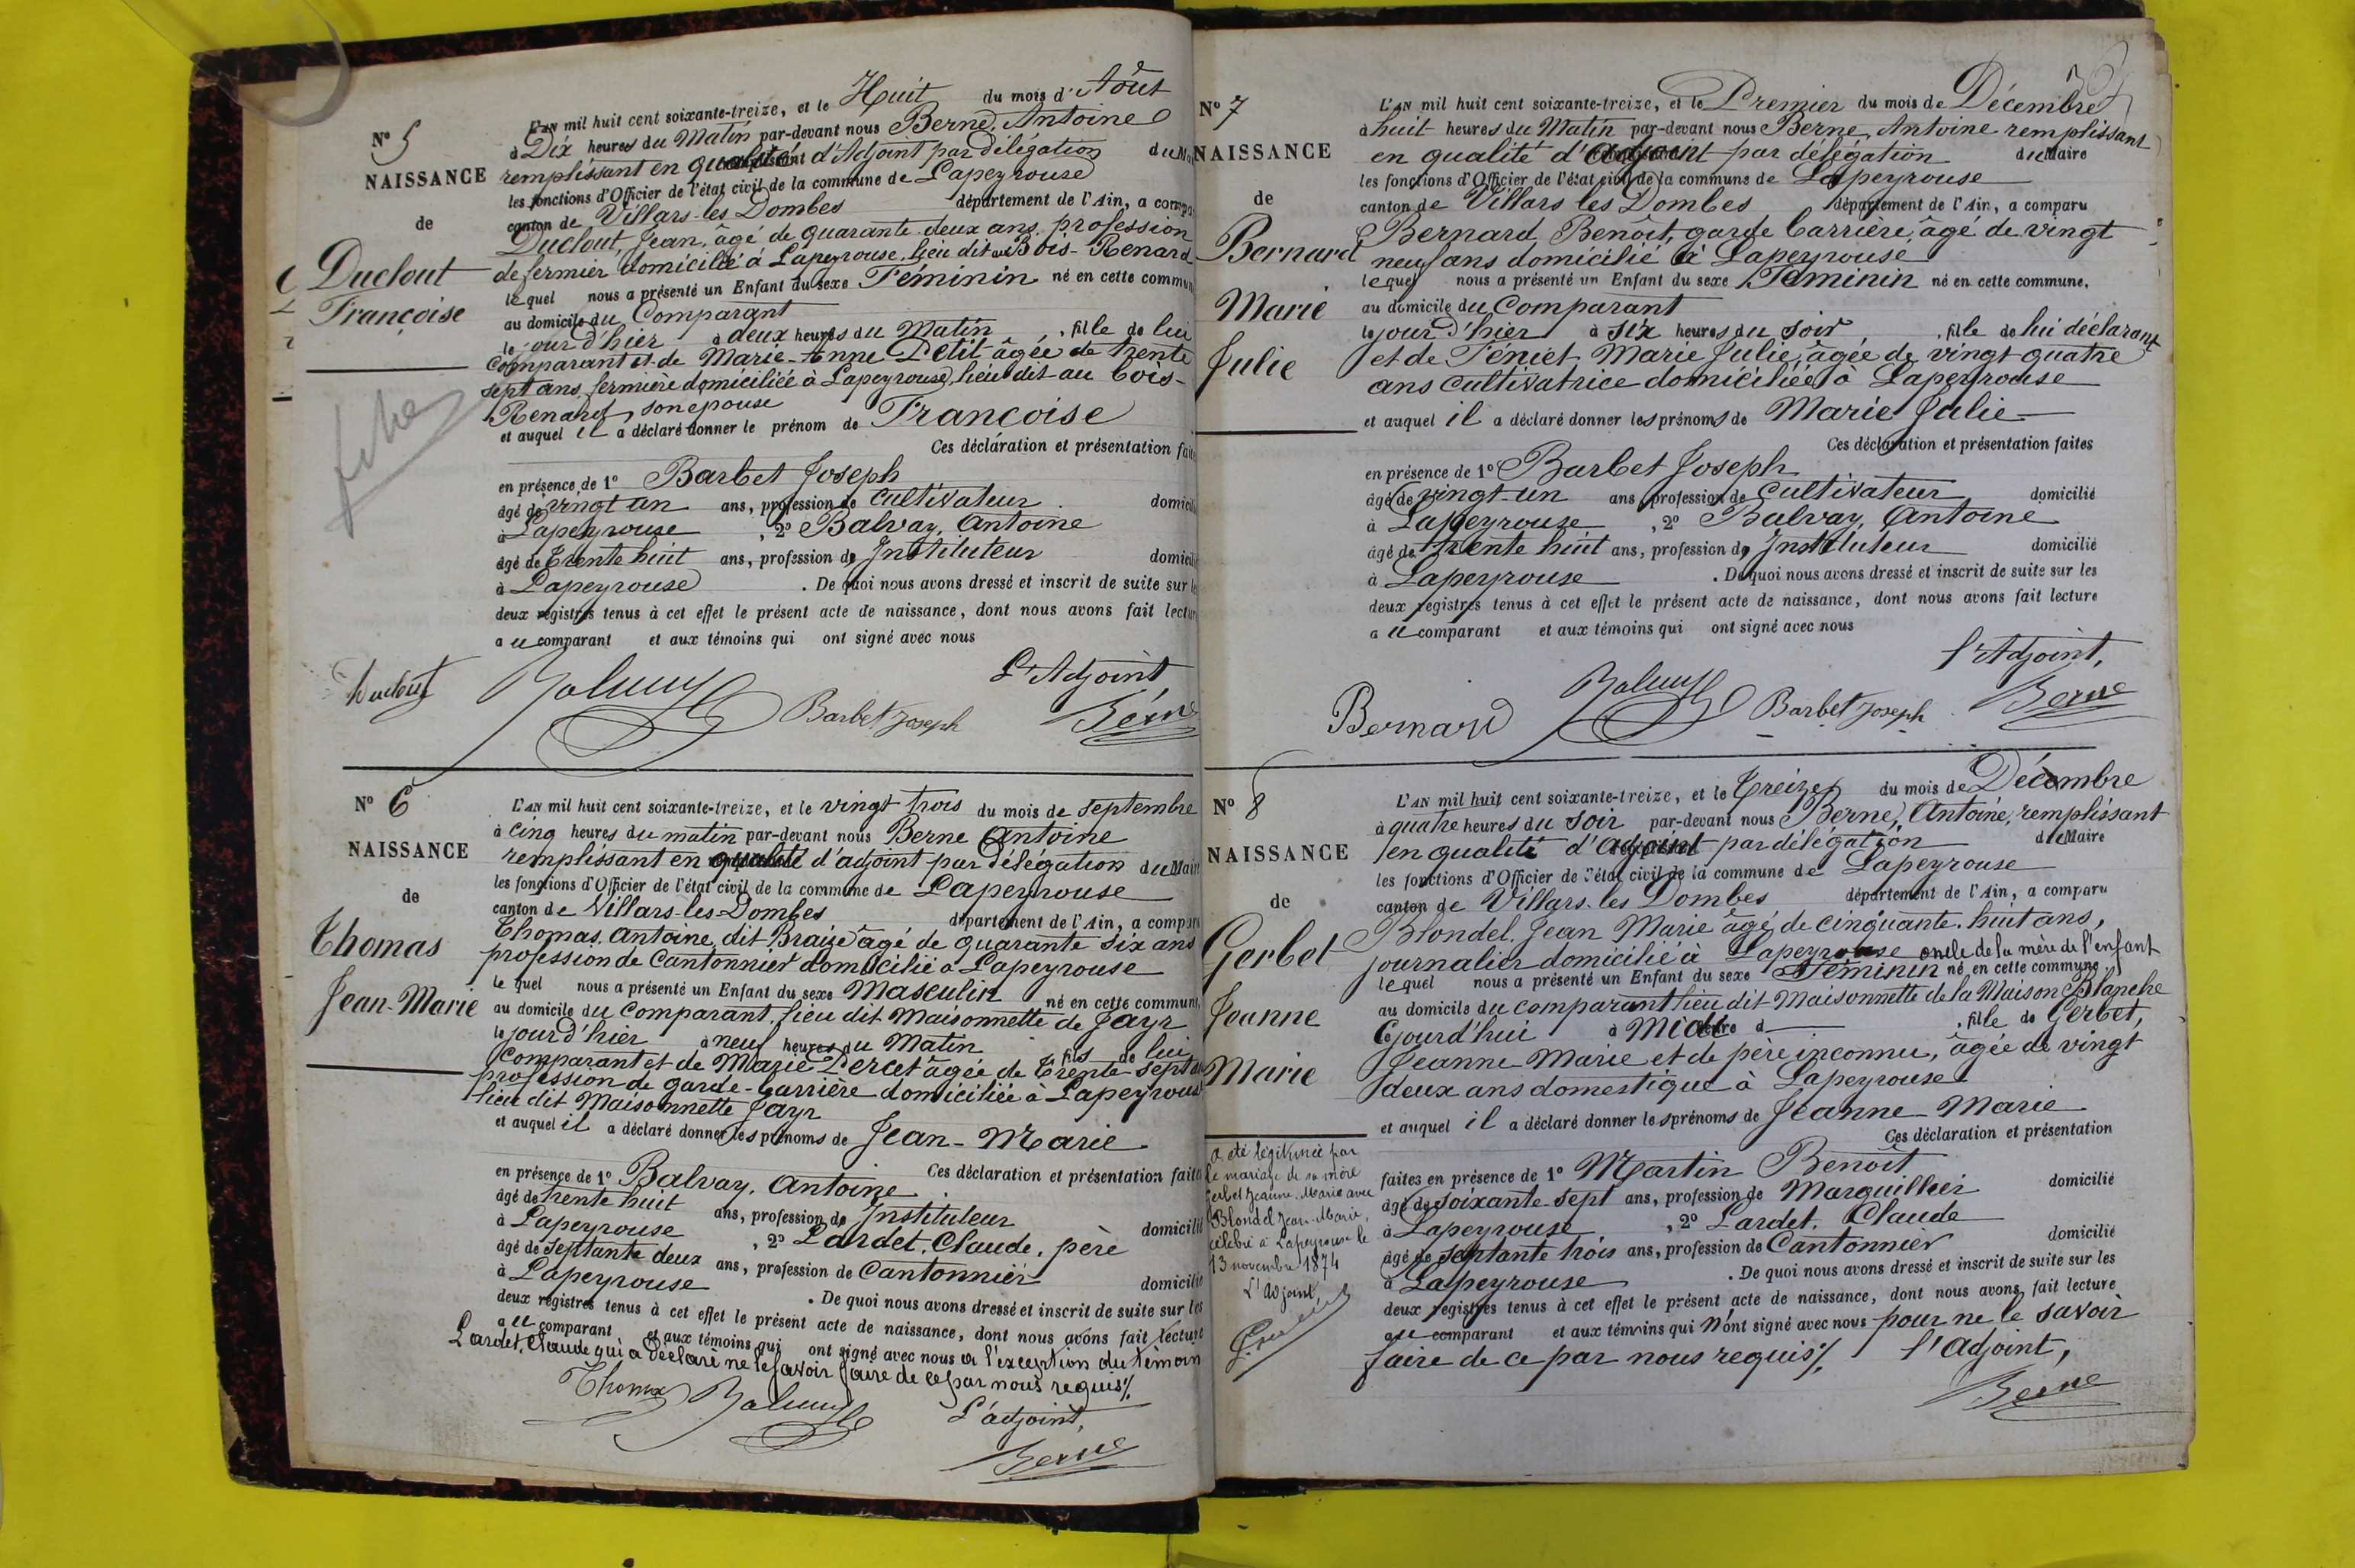 N° 5
NAISSANCE
de
Duclout
Françoise
fiche
L'AN mil huit cent soixante-treize, et le Huit du mois d'Août
à Dix heures du Matin par-devant nous Berne, Antoine
remplissant en qualité d'Adjoint par délégation du Mai
les fonctions d'Officier de l'état civil de la commune de Lapeyrouse
canton de Villars-les Dombes département de l'Ain, a compa
Duclout, Jean, âgé de quarante-deux ans, profession
de fermier domicilié à Lapeyrouse, lieu dit au Bois-Renard
lequel nous a présenté un Enfant du sexe Féminin né en cette commun
au domicile du Comparant
le jour d'hier à deux heures du Matin, fille de lui
comparant et de Marie-Anne Petit âgée de trente
sept ans, fermière domiciliée à Lapeyrouse, lieu dit au bois-
Renard, son epouse
et auquel il a déclaré donner le prénom de Françoise
Ces déclaration et présentation faite
en présence de 1° Barbet Joseph
âgé de vingt un ans, profession de cultivateur domicili
à Lapeyrouse, 2° Balvay, Antoine
âgé de Trente huit ans, profession de Instituteur domicili
à Lapeyrouse. De quoi nous avons dressé et inscrit de suite sur le
deux registres tenus à cet effet le présent acte de naissance, dont nous avons fait lectur
au comparant et aux témoins qui ont signé avec nous
L'Adjoint,
Duclout Balvay Barbet Joseph Berne
N° 6
NAISSANCE
de
Thomas
Jean-Marie
L'AN mil huit cent soixante-treize, et le vingt trois du mois de septembre
à cinq heures du matin par-devant nous Berne Antoine
remplissant en qualité d'adjoint par délégation du Mair
les fonctions d'Officier de l'état civil de la commune de Lapeyrouse
canton de Villars-les-Dombes département de l'Ain, a compar
Thomas, Antoine, dit Braize âgé de quarante six ans
profession de Cantonnier domicilié à Lapeyrouse
lequel nous a présenté un Enfant du sexe Masculin né en cette commune,
au domicile du comparant, lieu dit Maisonnette de Jayr
le jour d'hier à neuf heures du Matin, fils de lui
comparant et de Marie Percet âgée de Trente-sept
profession de garde-barrière domiciliée à Lapeyrouse
lieu dit Maisonnette Jayr
et auquel il a déclaré donner les prénoms de Jean-Marie
Ces déclaration et présentation faite
en présence de 1° Balvay, Antoine
âgé de trente huit ans, profession de Instituteur domicilié
à Lapeyrouse, 2° Lardet, Claude, père
âgé de septante deux ans, profession de Cantonnier domicilié
à Lapeyrouse. De quoi nous avons dressé et inscrit de suite sur les
deux registres tenus à cet effet le présent acte de naissance, dont nous avons fait lecture
au comparant et aux témoins qui ont signé avec nous à l'exception du témoin
Lardet, Claude qui a déclaré ne le savoir faire de ce par nous requis
Thomas Balvay L'adjoint,
Berne
N° 7
NAISSANCE
de
Bernard
Marie
Julie
L'AN mil huit cent soixante-treize, et le Premier du mois de Décembre
à huit heures du Matin par-devant nous Berne, Antoine remplissant
en qualité d'adjoint par délégation du Maire
les fonctions d'Officier de l'état civil de la commune de Lapeyrouse
canton de Villars les Dombes département de l'Ain, a comparu
Bernard, Benoît, garde barrière, âgé de vingt
neuf ans domicilié à Lapeyrouse
lequel nous a présenté un Enfant du sexe Féminin né en cette commune,
au domicile du Comparant
le jour d'hier à six heures du soir, fille de lui déclarant
et de Péniet Marie Julie, âgée de vingt quatre
ans cultivatrice domiciliée à Lapeyrouse
et auquel il a déclaré donner les prénoms de Marie Julie
Ces déclaration et présentation faites
en présence de 1° Barbet Joseph
âgé de vingt-un ans, profession de Cultivateur domicilié
à Lapeyrouse, 2° Balvay, Antoine
âgé de trente huit ans, profession de Instituteur domicilié
à Lapeyrouse. De quoi nous avons dressé et inscrit de suite sur les
deux registres tenus à cet effet le présent acte de naissance, dont nous avons fait lecture
au comparant et aux témoins qui ont signé avec nous
l'Adjoint,
Bernard Balvay Barbet Joseph Berne
N° 8
NAISSANCE
de
Gerbet
Jeanne
Marie
a été légitimée par
le mariage de sa mère
Gerbet Jeanne-Marie avec
Blondel Jean-Marie,
célébré à Lapeyrouse le
13 novembre 1874
L'Adjoint,
L'AN mil huit cent soixante-treize, et le Treize du mois de Décembre
à quatre heures du soir par-devant nous Berne, Antoine, remplissant
en qualité d'adjoint par délégation du Maire
les fonctions d'Officier de l'état civil de la commune de Lapeyrouse
canton de Villars-les Dombes département de l'Ain, a comparu
Blondel, Jean Marie âgé de cinquante-huit ans,
journalier domicilié à Lapeyrouse oncle de la mère de l'enfant
lequel nous a présenté un Enfant du sexe Féminin né en cette commune
au domicile du comparant lieu dit Maisonnette de la Maison Blanche
Cejourd'hui à Midi, fille de Gerbet,
Jeanne Marie et de père inconnu, âgée de vingt
deux ans domestique à Lapeyrouse
et auquel il a déclaré donner les prénoms de Jeanne Marie
Ces déclaration et présentation
faites en présence de 1° Martin Benoît
âgé de soixante-sept ans, profession de Marguillier domicilié
à Lapeyrouse, 2° Lardet, Claude
âgé de septante trois ans, profession de Cantonnier domicilié
à Lapeyrouse. De quoi nous avons dressé et inscrit de suite sur les
deux registres tenus à cet effet le présent acte de naissance, dont nous avons fait lecture
au comparant et aux témoins qui n'ont signé avec nous pour ne le savoir
faire de ce par nous requis l'Adjoint,
Berne